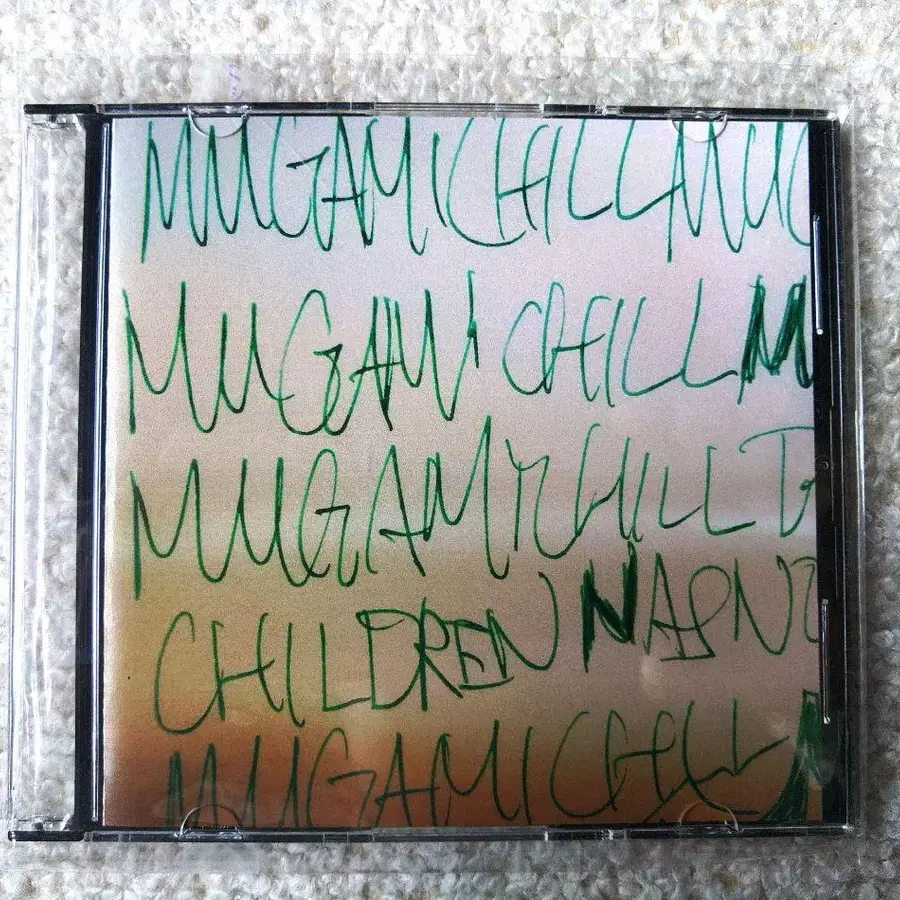 MUGAMICHILLMUG
MUGAMI CHILL M
MUGAMICHILL
CHILDREN
MUGAMICHILL